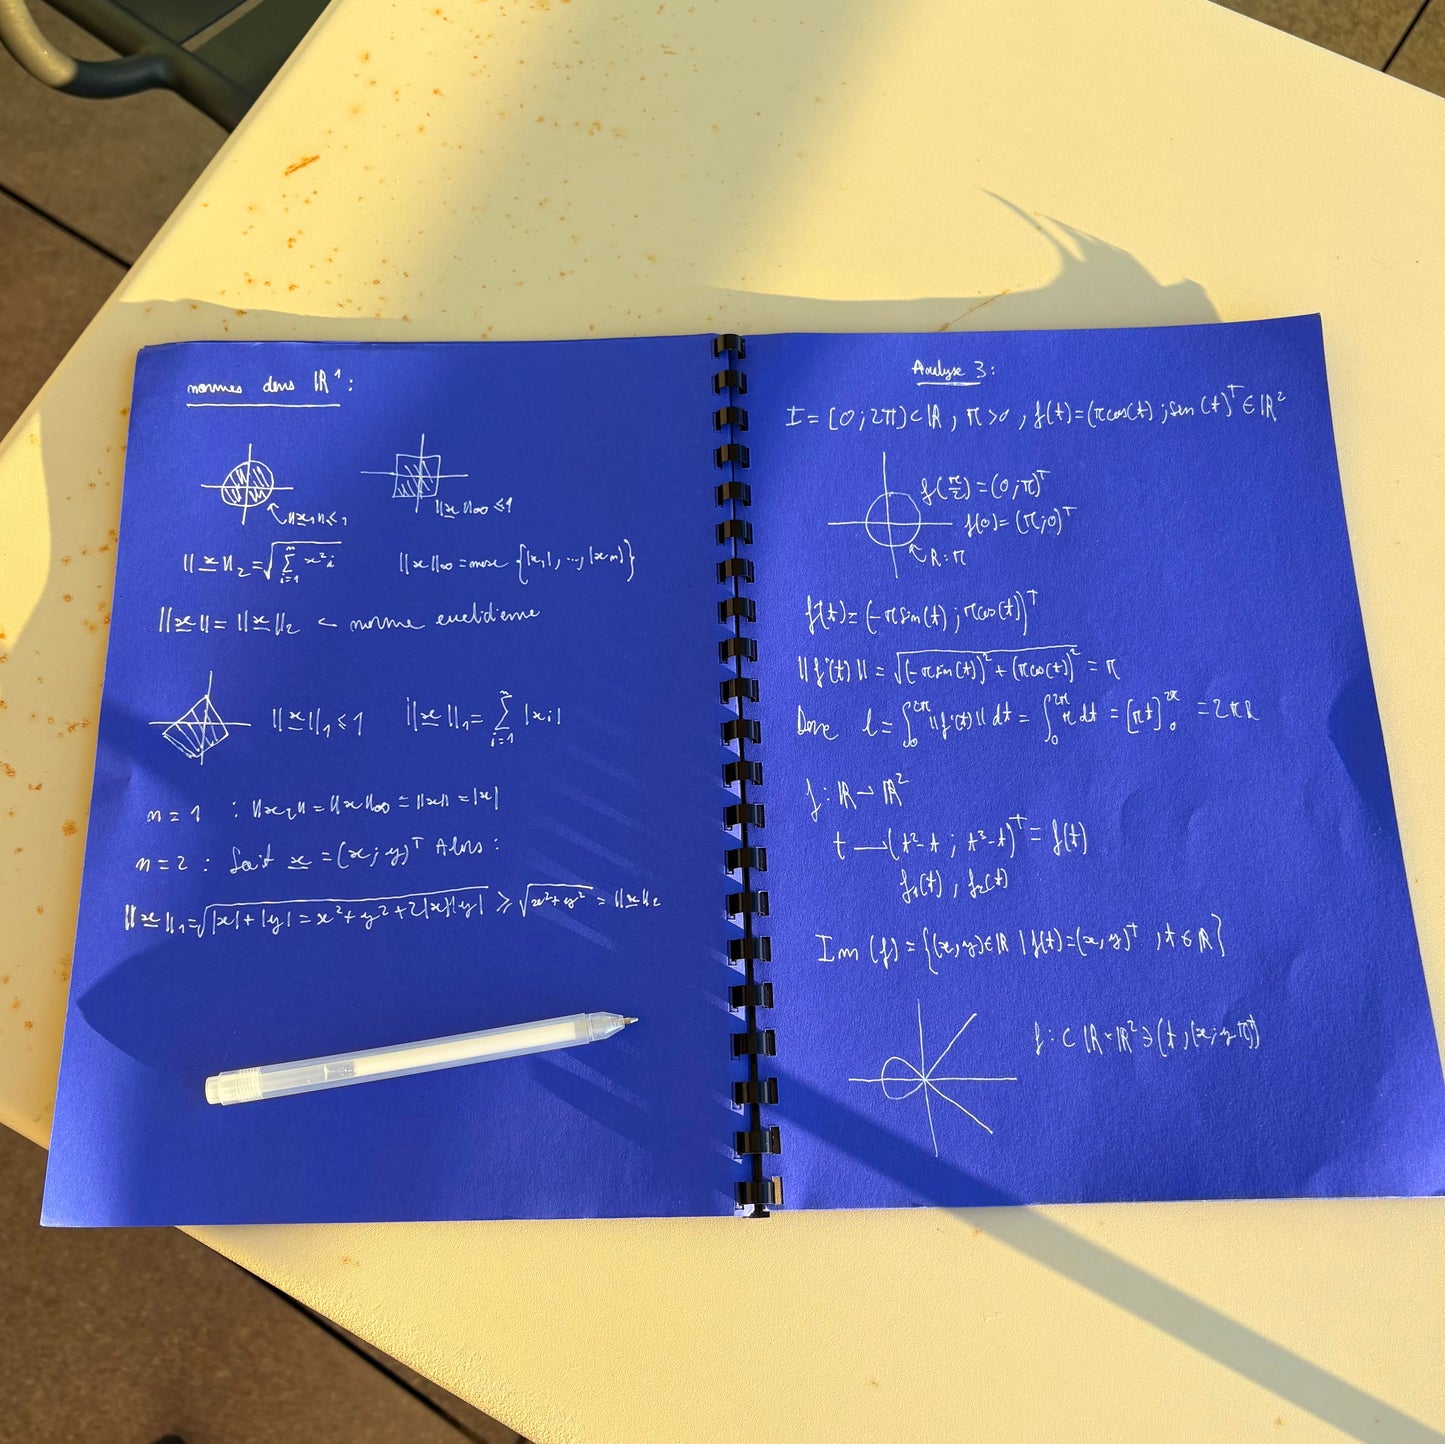 normes dans ℝ¹ :
||x₁|| ≤ 1
||x||∞ ≤ 1
||x||₂ = √(∑_{i=1}^{n} x²ᵢ)
||x||∞ = max {|x₁|, ..., |xₙ|}
||x|| = ||x||₂ ← norme euclidienne
||x||₁ ≤ 1
||x||₁ = ∑_{i=1}^{n} |xᵢ|
n = 1 : ||x₂|| = ||x||∞ = ||x|| = |x|
n = 2 : Soit x = (x ; y)ᵀ Alors :
||x||₁ = √(|x| + |y| = x² + y² + 2|x||y|) ≥ √(x² + y²) = ||x||₂
Analyse 3 :
I = [0 ; 2π) ⊂ ℝ , π > 0 , f(t) = (π cos(t) ; sin(t))ᵀ ∈ ℝ²
f(π/2) = (0 ; π)ᵀ
f(0) = (π ; 0)ᵀ
R = π
f'(t) = (-π sin(t) ; π cos(t))ᵀ
||f'(t)|| = √((-π sin(t))² + (π cos(t))²) = π
Donc l = ∫₀^{2π} ||f'(t)|| dt = ∫₀^{2π} π dt = [πt]₀^{2π} = 2πR
f : ℝ → ℝ²
t → (t² - t ; t³ - t)ᵀ = f(t)
f₁(t) , f₂(t)
Im (f) = {(x, y) ∈ ℝ | f(t) = (x, y)ᵀ , t ∈ ℝ}
f : ⊂ ℝ × ℝ² ∋ (t , (x ; y